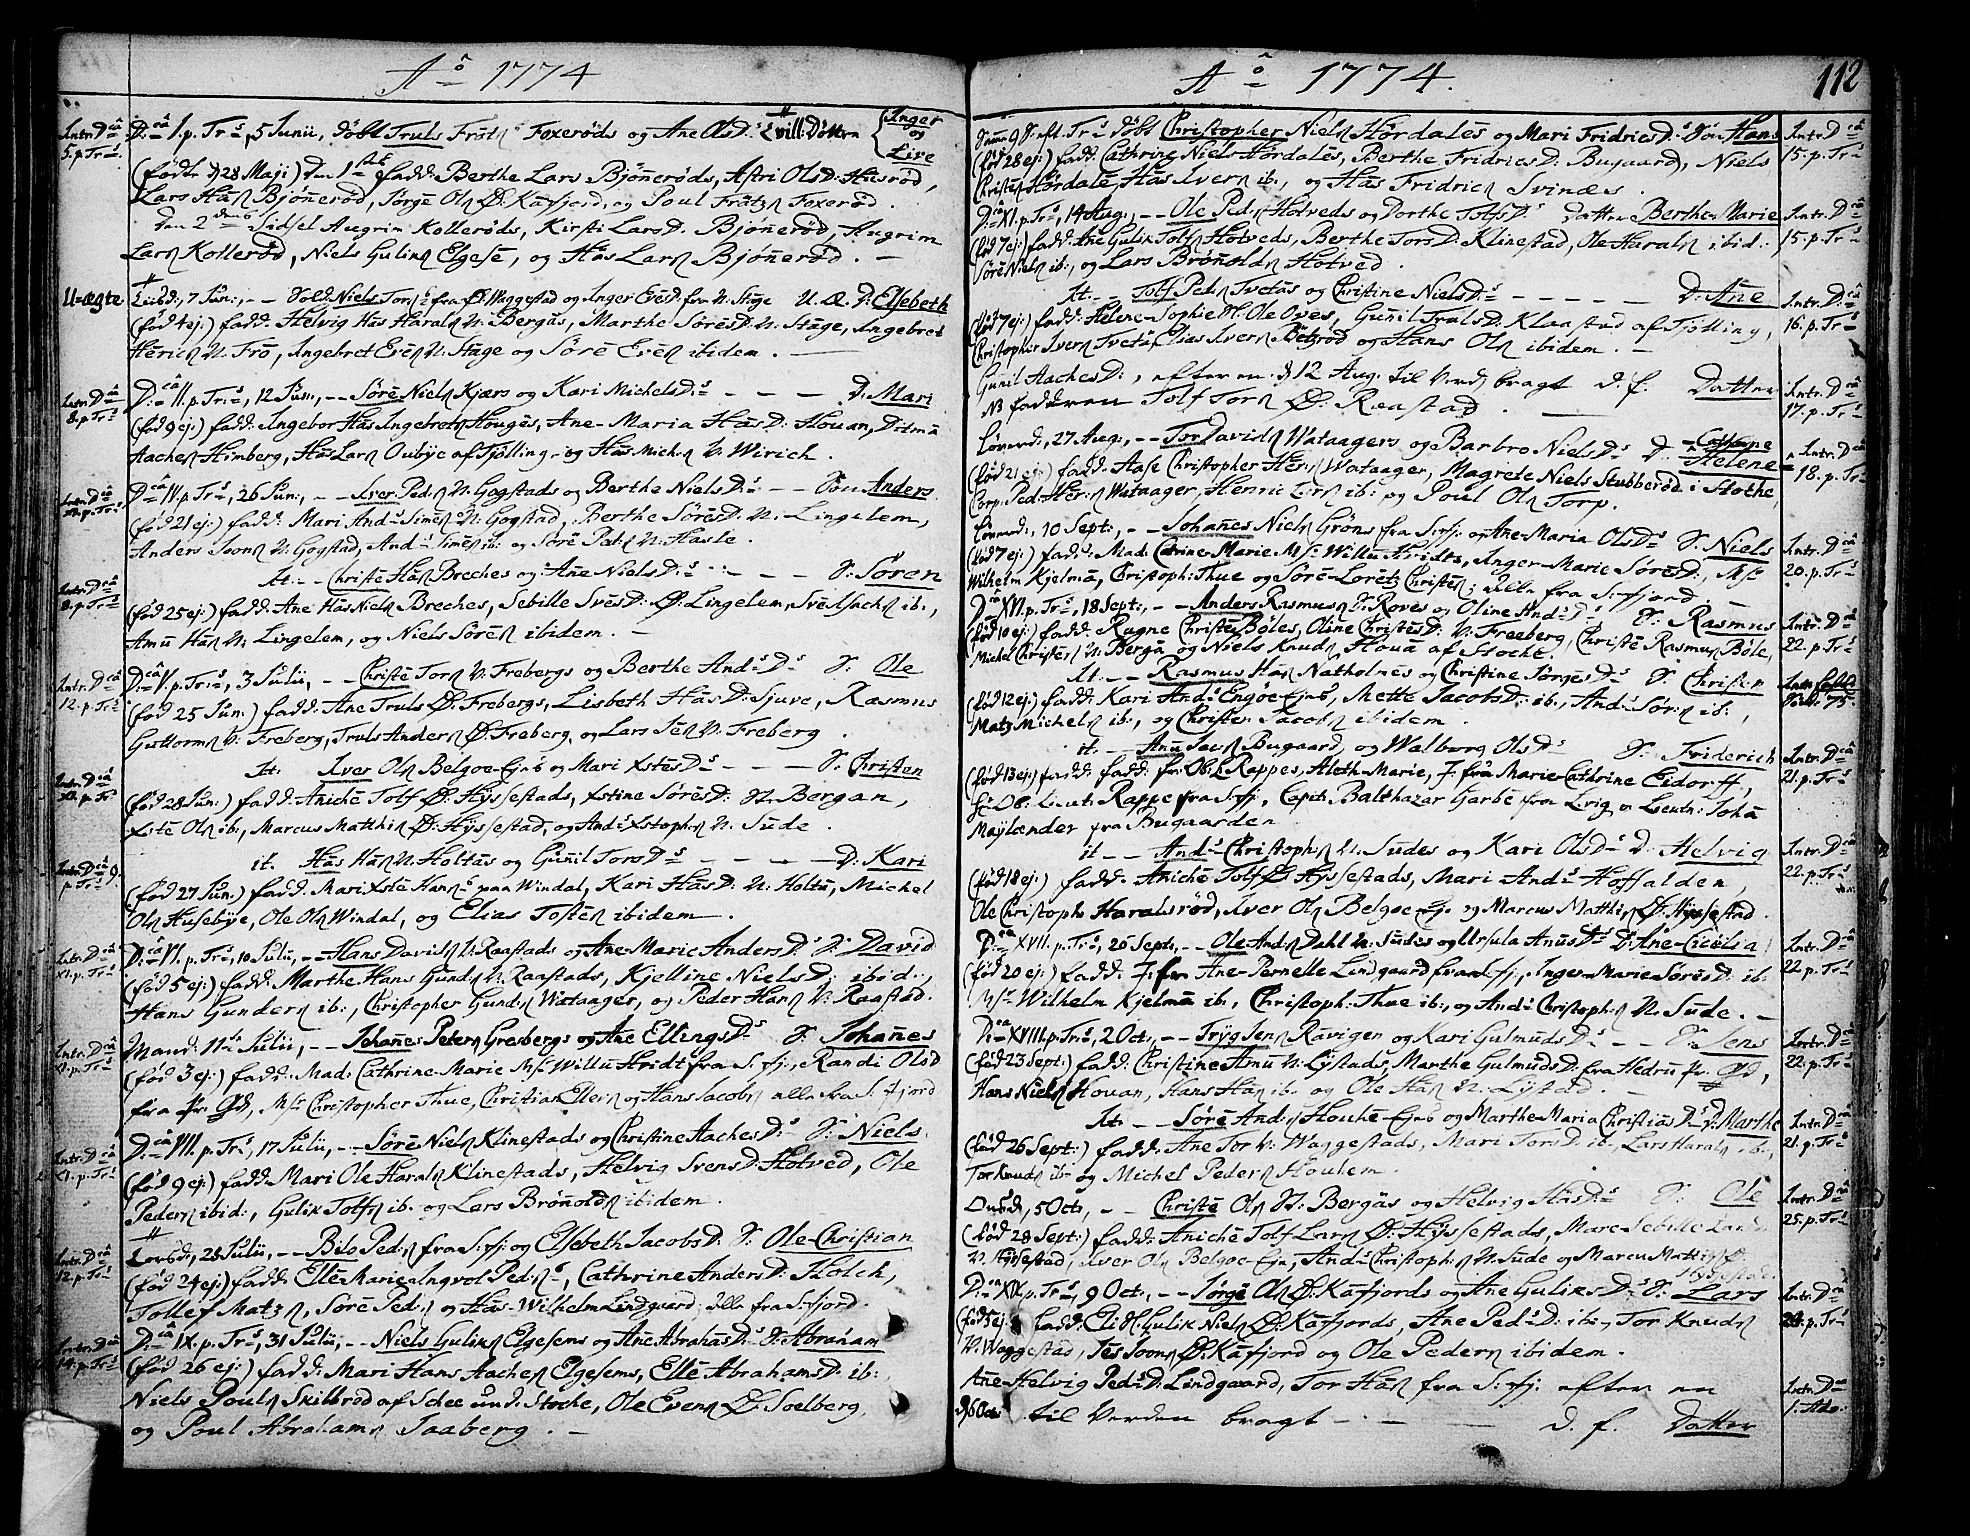 Aº 1774
Intr. Dca D:ca 1. p. Trs, 5 Junii, døbt Truls Frøtz Foxerøds og Ane OlsD:s tvill: Døttre Inger
5. p. Trs. og
Live
(fødte d 28 Maji) Den 1ste fadd: Berthe Lars Bjønnerøds, Astri OlsD: Husrød,
Lars Hans Bjønnerød, Jørge Ols Ø. Kafjord, og Poul Frøtz Foxerød.
den 2den Sidsel Augrim Kollerøds, Kirsti LarsD: Bjønnerød, Augrim
Lars Kollerød, Niels Guliks Elgese, og Hans Lars Bjønnerød. —
U-ægte Eusd:, 7 Jun:, -- Sold: Niels Tors: fra Ø. Waggestad og Inger EvesD. fra N. Stage U. Æ. D: Elsebeth
(fød 4 ej:) fadd: Helvig Hans Harals N: Bergås, Marthe SøresD: N: Stage, Ingebret
Henrichs N: Frø, Ingebret Evens N: Stage og Søre Evens ibidem. —
Intr. Dca D:ca II. p. Trs, 12 Jun:, -- Søre Niels Kjærs og Kari MichelsD:s - - - D: Mari
8. p. Trs
(fød 9 ej:) fadd: Ingebor Hans Ingebrets Houges, Ane-Maria HansD: Houan, Ditma
Aaches Himberg, Hans Lars Oubye af Tjølling, og Hans Michs N. Wirich.
Intr. Dca D:ca IV. p. Trs, 26 Jun:, -- Iver Peds N. Gogstads og Berthe NielsD:s - Søn Anders
(fød 21 ej:) fadd: Mari Ands Simens N. Gogstad, Berthe SøresD: N. Lingelem,
Anders Joons N: Gogstad, Ands Simens ib: og Søre Peds N: Hasle.
Intr. Dca It. -- Christe Hans Breches og Ane NielsD:s - - - S: Søren
8. p. Trs
(fød 25 ej:) fadd: Ane Hans Niels Breches, Sebille SvesD: Ø: Lingelem, Sve Isachs ib:,
Amu Hans N. Lingelem, og Niels Sørens ibidem. —
Intr. Dca D:ca V. p. Trs, 3 Julii, -- Christe Tors N. Frebergs og Berthe AndsD:s S: Ole
12. p. Trs
(fød 25 Jun:) fadd: Ane Truls Ø: Frebergs, Lisbeth HansD: Sjuve, Rasmus
Guttorms N: Freberg, Truls Anders Ø: Freberg, og Lars Jens N. Freberg.
Intr. Dca It. Iver Ols Belgoe-Ejeb og Mari XstesD:s - - - S: Christen
(fød 28 Jun:) fadd: Aniche Tolf Ø: Hyssestads, Xstine SøresD: N. Bergan,
Xste Ols ib:, Marcus Matthis Ø: Hyssestad, og Ands Xstophs N. Sude.
Intr. Dca 9. it. Hans Hans N: Holtas og Gunil TorsD:s - - - D: Kari
p. Trs
(fød 27 Jun:) fadd: Mari Xste Hans paa Windal, Kari HansD: N: Holtu, Michel
Ols Husebye, Ole Ols Windal, og Elias Tostes ibidem.
Intr. Dca D:ca VI. p. Trs, 10 Julii, -- Hans Davids N. Raastads og Ane-Marie AndersD:s S: David
XI. p. Trs
(fød 5 ej:) fadd: Marthe Hans Gunds N. Raastads, Kjelline NielsD: ibid:,
Hans Gunders ib:, Christopher Gunds Wataager, og Peder Hans N: Raastad.
Intr. Dca Mand: 11te Julii, -- Johanes Peters Gresbergs og Ane EllingsD:s S: Johanes
XI. p. Trs
(fød 3 ej:) fadd: Mad: Cathrine-Marie Ms: Willu Hridt fra S:fj:, Randi OlsD
fra Pr: Gd, Ms: Christopher Thue, Christian Ellers og Hans Jacobs alle fra S. fjord
Intr. Dca D:ca VII. p. Trs, 17 Julii, -- Søre Niels Klinestads og Christine AachesD:s S: Niels.
XI. p. Trs
(fød 9 ej:) fadd: Mari Ole Harals Klinestads, Helvig SvensD: Hotved, Ole
Peders ibid:, Gulik Tolfs ib: og Lars Brønolds ibidem.
Intr. Dca Lovsd, 28 Julii, -- Bilo Peds fra S:fj: og Elsebeth JacobsD: S: Ole-Christian
12. p. Trs
(fød 24 ej:) fadd: Elle-Marie Ingvol Peds:, Cathrine AndersD: Holch,
Tollef Matzs, Søre Peds og Hans-Wilhelm Lindgaard; alle fra S:fjord.
Intr. Dca D:ca IX. p. Trs, 31 Julii, -- Niels Guliks Elgesems og Ane AbrahasD:s S: Abraham
14. p. Trs
(fød 26 ej:) fadd: Mari Hans Aaches Elgesems, Elle AbrahamsD: ib:
Niels Pouls Skilbrød af Schee und. Stoche, Ole Evens Ø. Soelberg,
og Poul Abrahams Jaaberg. —
Aº 1774. 112
9 S. eft. Trs døbt Christopher Niels Hørdales og Mari FridricsD:s Søn Hans Intr. Dca
15. p. Trs
(fød 28 ej:) fadd: Cathrine Niels Hørdales, Berthe FridricsD: Bugaard, Niels
Christens Hørdale, Hans Ivers ib:, og Hans Fridrics Svinæs.
D:ca XI. p. Trs, 14 Aug:, -- Ole Peds Hotveds og Dorthe TolfsD:s Datter Berthe-Marie Intr. Dca
15. p. Trs
(fød 7 ej:) fadd: Ane Gulik Tolfs Hotveds, Berthe TorsD: Klinestad, Ole Harals ibid:
Søre Niels ib:, og Lars Brønolds Hotved.
It. -- Tolf Peds Tvetas og Christine NielsD:s - - - D: Ane Intr. Dca
16. p. Trs
(fød 7 ej:) fadd: Helene-Sophie H: Ole Oves, Gunil TrulsD: Klaastad af Tjølling,
Christopher Ivers Tveta, Elias Ivers Bøtgrød og Hans Ols ibidem. —
Gunil AachesD:, efter en d 12 Aug. til Verd: bragt d. f. Datter Intr. Dca
NB fadderen Tolf Tors Ø: Reastad. 17. p. Trs
Løverd, 27 Aug:, -- Tor Davids Wataagers og Barbro NielsD:s D: Cathrine Helene Intr. Dca
18. p. Trs
(fød 21 ej:) fadd: Aase Christopher Hens Wataager, Magrete Niels Stubberød i Stothe,
Corp. Ped: Hens Wataager, Henric Lars ib: og Poul Ols Torp.
Lørverd:, 10 Sept:, -- Johanes Niels Grøns fra S:fj: og Ane-Maria OlsD:s S: Niels Intr. Dca
20. p. Trs
(fød 7 ej:) fadd: Mad: Catrine-Marie Ms: Willu Hridts, Inger-Marie SøresD:, Ms:
Wilhelm Kjelma, Christoph: Thue og Søre-Loretz Christes; alle fra S:fjord.
D:ca XVI. p. Trs, 18 Sept:, -- Anders Rasmus N: Roves og Oline AndsD:s S: Rasmus Intr. Dca
22. p. Trs
(fød 10 ej:) fadd: Ragne Christes Bøles, Oline ChristesD: N: Freeberg, Christe Rasmus Bøle,
Michel Christes N: Berga og Niels Knuds Houa af Stoche.
It. -- Rasmus Hans Natholmes og Christine JørgesD:s S: Christen
75.
(fød 12 ej:) fadd: Kari Ands Engoe-Ejeb, Mette JacobsD: ib:, Ands Sørs ib:,
Matz Michels ib:, og Christe Jacobs ibidem.
it. -- Anu Jans Bugaard, og Walborg OlsD:s S: Friderich Intr. Dca
21. p. Trs
(fød 13 ej:) fadd: fadd: fr: Ob: L. Rappes, Aleth-Marie, J. fra Marie-Cathrine Eidorff,
Hr Ob: Lieut: Rappe fra S:fj:, Capit: Balthazar Garbe fra Lvig, og Lieutn: Joha
Maylænder fra Bugaarden
it -- Ands Christophs N. Sudes og Kari OlsD:s D: Helvig Intr. Dca
22. p. Trs
(fød 18 ej:) fadd: Aniche Tolf Ø Hyssestads, Mari Ands Hoffalden,
Ole Christophs Haralsrød, Iver Ols Belgoe-Eje og Marcus Matthis Ø: Hyssestad.
D:ca XVII. p. Trs, 25 Sept:, -- Ole Ands Dahl N: Sudes og Ursula AnusD:s D: Ane-Cicelia Intr. Dca
22. p. Trs
(fød 20 ej:) fadd: J. fr. Ane-Pernelle Lindgaard fra S:fj:, Inger-Marie SøresD: ib.
Ms: Wilhelm Kjelma ib:, Christoph: Thue ib:, og Ands Christophs N. Sude. —
D:ca XVIII. p. Trs, 2 Oct:, -- Tryg Jens Ravigen og Kari GulmudsD:s -- S: Jens Intr. Dca
22. p. Trs
(fød 23 Sept:) fadd: Christine Amu N: Lystads, Marthe GulmudsD: fra Hedru Pr: Gd,
Hans Niels Houan, Hans Hans ib: og Ole Hans N: Lystad. —
It. -- Søre Ands Houke-Ejeb og Marthe Maria ChristiasD:s D: Marthe Intr. Dca
21. p. Trs
(fød 26 Sept:) fadd: Ane Tor V: Waggestads, Mari TorsD: ib., Lars Harals ib:,
Tor Knuds ib: og Michel Peders Houlem.
Onsd, 5 Oct, -- Christe Ols N: Bergas og Helvig HansD:s S: Ole Intr. Dca
25. p. Trs
(fød 28 Sept:) fadd: Aniche Tolf Lars Ø: Hyssestads, Mare-Sebille Lards
V. Hyssestad, Iver Ols Belgoe-Eje, Ands Christophs N. Sude og Marcus Matthis Ø
Hyssestad.
D:ca XIX. p. Trs, 9 Oct:, -- Jørge Ols Ø: Kafjords og Ane GuliksD:s S: Lars Intr. Dca
p. Trs
(fød 5 ej:) fadd: Eli Gulik Niels Ø: Kafjords, Ane PedsD: ib:, Tor Knuds
V. Waggestad, Jes Joons Ø: Kafjord og Ole Peders ibidem. —
Ane-Helvig PedsD: Lindgaard, Tor Hans fra S:fj: efter en Intr. Dca
d 6 Oct: til Verden bragt - - d. f. Datter 1. Adv: